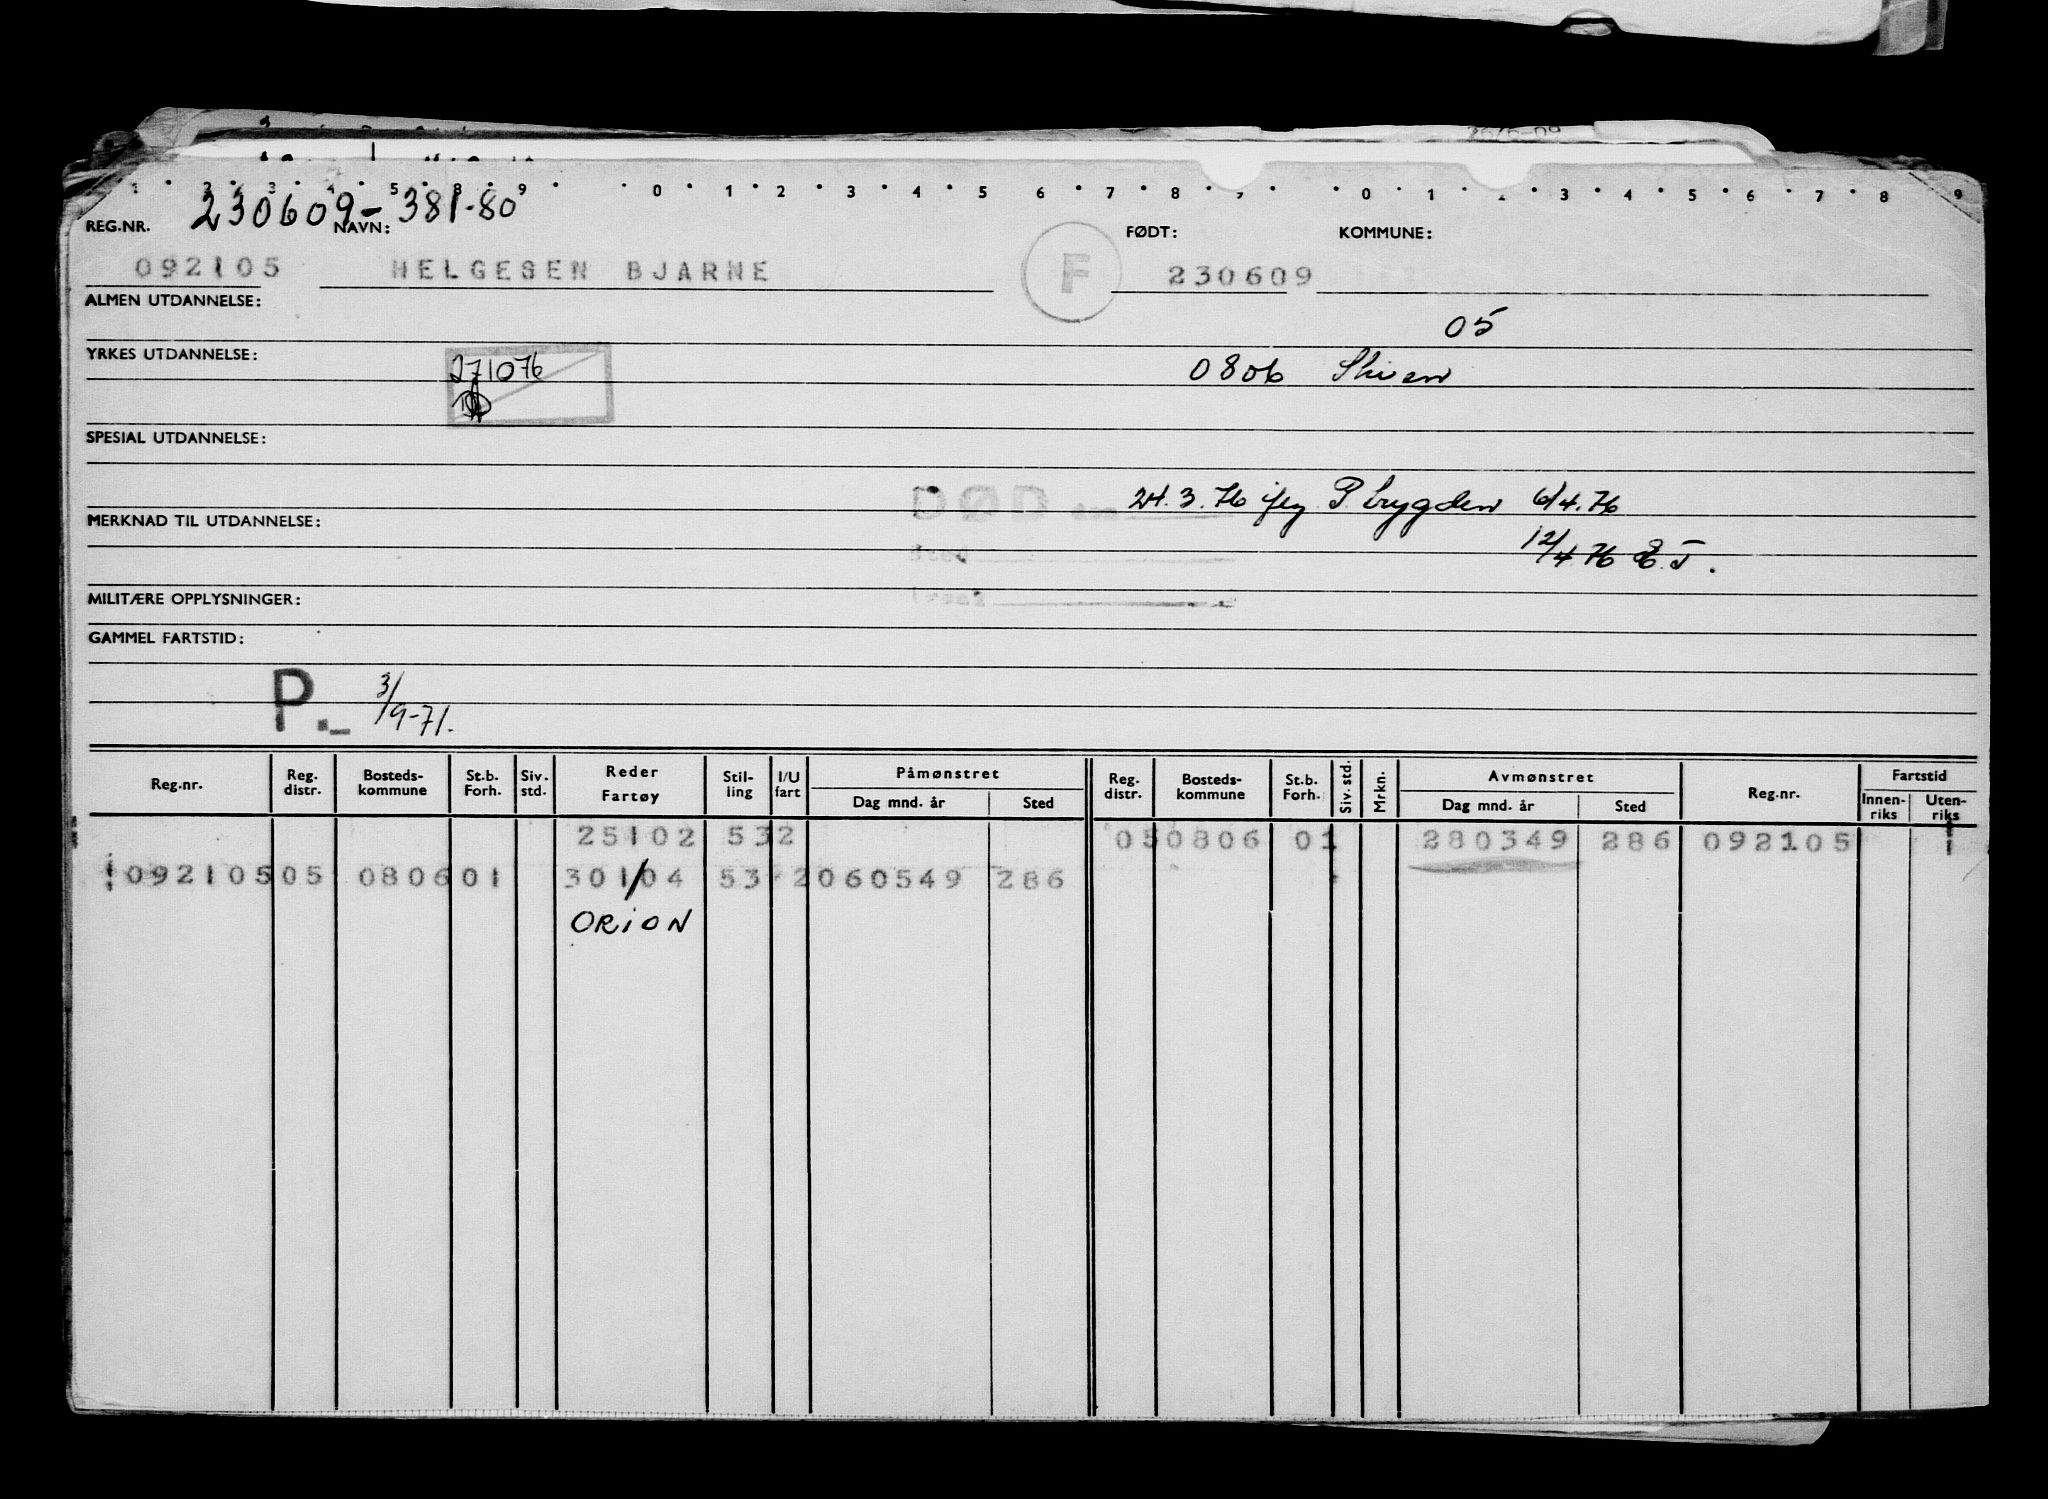 2 3 4 5 8 9 0 1 2 3 4 5 6 7 8 0 1 3 4 5 6 7 8 9
230609-381-80
REG.NR. NAVN: FØDT: KOMMUNE:
092105 HELGESEN BJARNE F 230609
ALMEN UTDANNELSE:
05
YRKES UTDANNELSE:
271076 0806 Skien
SPESIAL UTDANNELSE:
DØD 24.3.76 6/4.76
MERKNAD TIL UTDANNELSE:
12/4.76 E.T.
MILITÆRE OPPLYSNINGER:
GAMMEL FARTSTID:
P. 3/9-71.
Reg.nr. Reg. distr. Bosteds-kommune St.b. Forh. Siv. std. Reder Fartøy Stil-ling I/U fart Påmønstret Dag mnd. år Sted Reg. distr. Bosteds-kommune St.b. Forh. Siv. std. Mrkn. Avmønstret Dag mnd. år Sted Reg.nr. Fartstid Innen-riks Uten-riks
25102 532 050806 01 280349 286 092105
092105 05 0806 01 301/04 53 2 060549 286
ORION